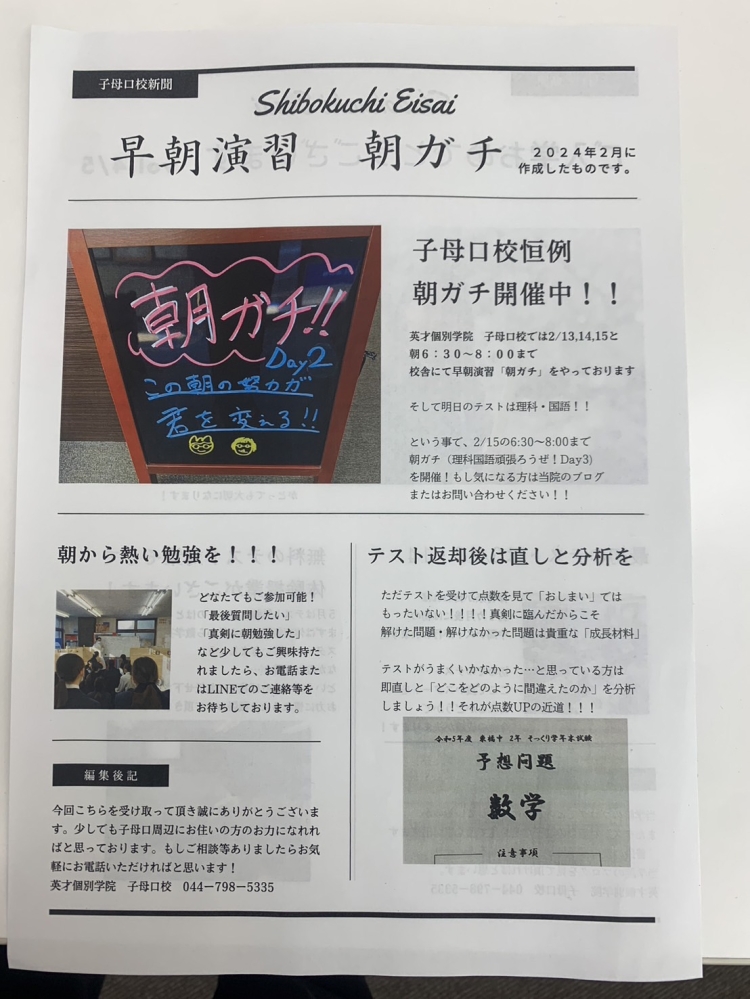 子母口校新聞
Shibokuchi Eisai
早朝演習　朝ガチ
２０２４年２月に
作成したものです。
朝ガチ!!
Day2
この朝の努力が
君を変える!!
子母口校恒例
朝ガチ開催中！！
英才個別学院　子母口校では2/13,14,15と
朝６：３０～８：００まで
校舎にて早朝演習「朝ガチ」をやっております
そして明日のテストは理科・国語！！
という事で、2/15の6:30～8:00まで
朝ガチ（理科国語頑張ろうぜ！Day3)
を開催！もし気になる方は当院のブログ
またはお問い合わせください！！
朝から熱い勉強を！！！
どなたでもご参加可能！
「最後質問したい」
「真剣に朝勉強した」
など少しでもご興味持た
れましたら、お電話また
はLINEでのご連絡等を
お待ちしております。
編集後記
今回こちらを受け取って頂き誠にありがとうございま
す。少しでも子母口周辺にお住いの方のお力になれれ
ばと思っております。もしご相談等ありましたらお気
軽にお電話いただければと思います！
英才個別学院　子母口校　044ー798ー5335
テスト返却後は直しと分析を
ただテストを受けて点数を見て「おしまい」では
もったいない！！！！真剣に臨んだからこそ
解けた問題・解けなかった問題は貴重な「成長材料」
テストがうまくいかなかった…と思っている方は
即直しと「どこをどのように間違えたのか」を分析
しましょう！！それが点数UPの近道！！！
令和5年度 東橘中 2年 そっくり学年末試験
予想問題
数学
注意事項